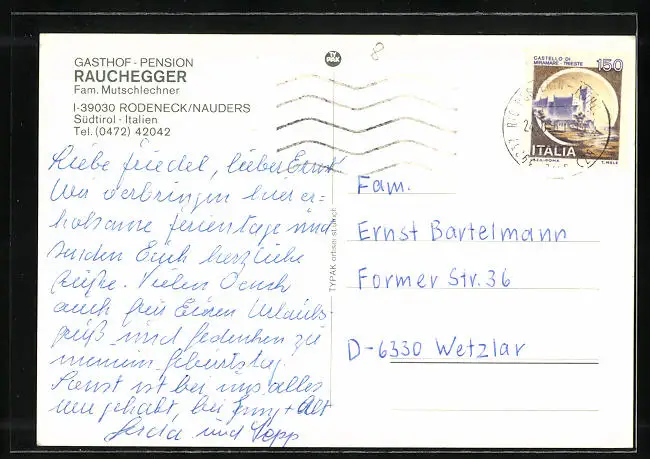 GASTHOF - PENSION
RAUCHEGGER
Fam. Mutschlechner
I-39030 RODENECK/NAUDERS
Südtirol - Italien
Tel. (0472) 42042
TY
PAK
8
CASTELLO DI
MIRAMARE - TRIESTE
150
ITALIA
Liebe Friedel, lieber Ernst
Wir verbringen hier er=
holsame Ferientage und
senden Euch herzliche
Grüße. Vielen Dank
auch für Euren Urlaubs-
gruß und Gedenken zu
meinem Geburtstag.
Sonst ist bei uns alles
beim Jung + Alt
Gerda und Sepp
TYPAK ortisei st.ulrich
Fam.
Ernst Bartelmann
Former Str. 36
D-6330 Wetzlar